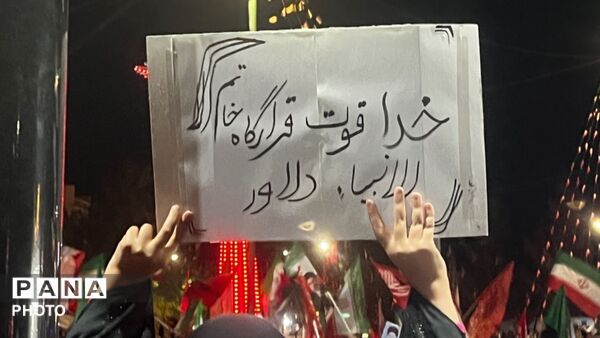 خدا قوت قرارگاه خاتم
الانبیاء دلاور
PANA
PHOTO